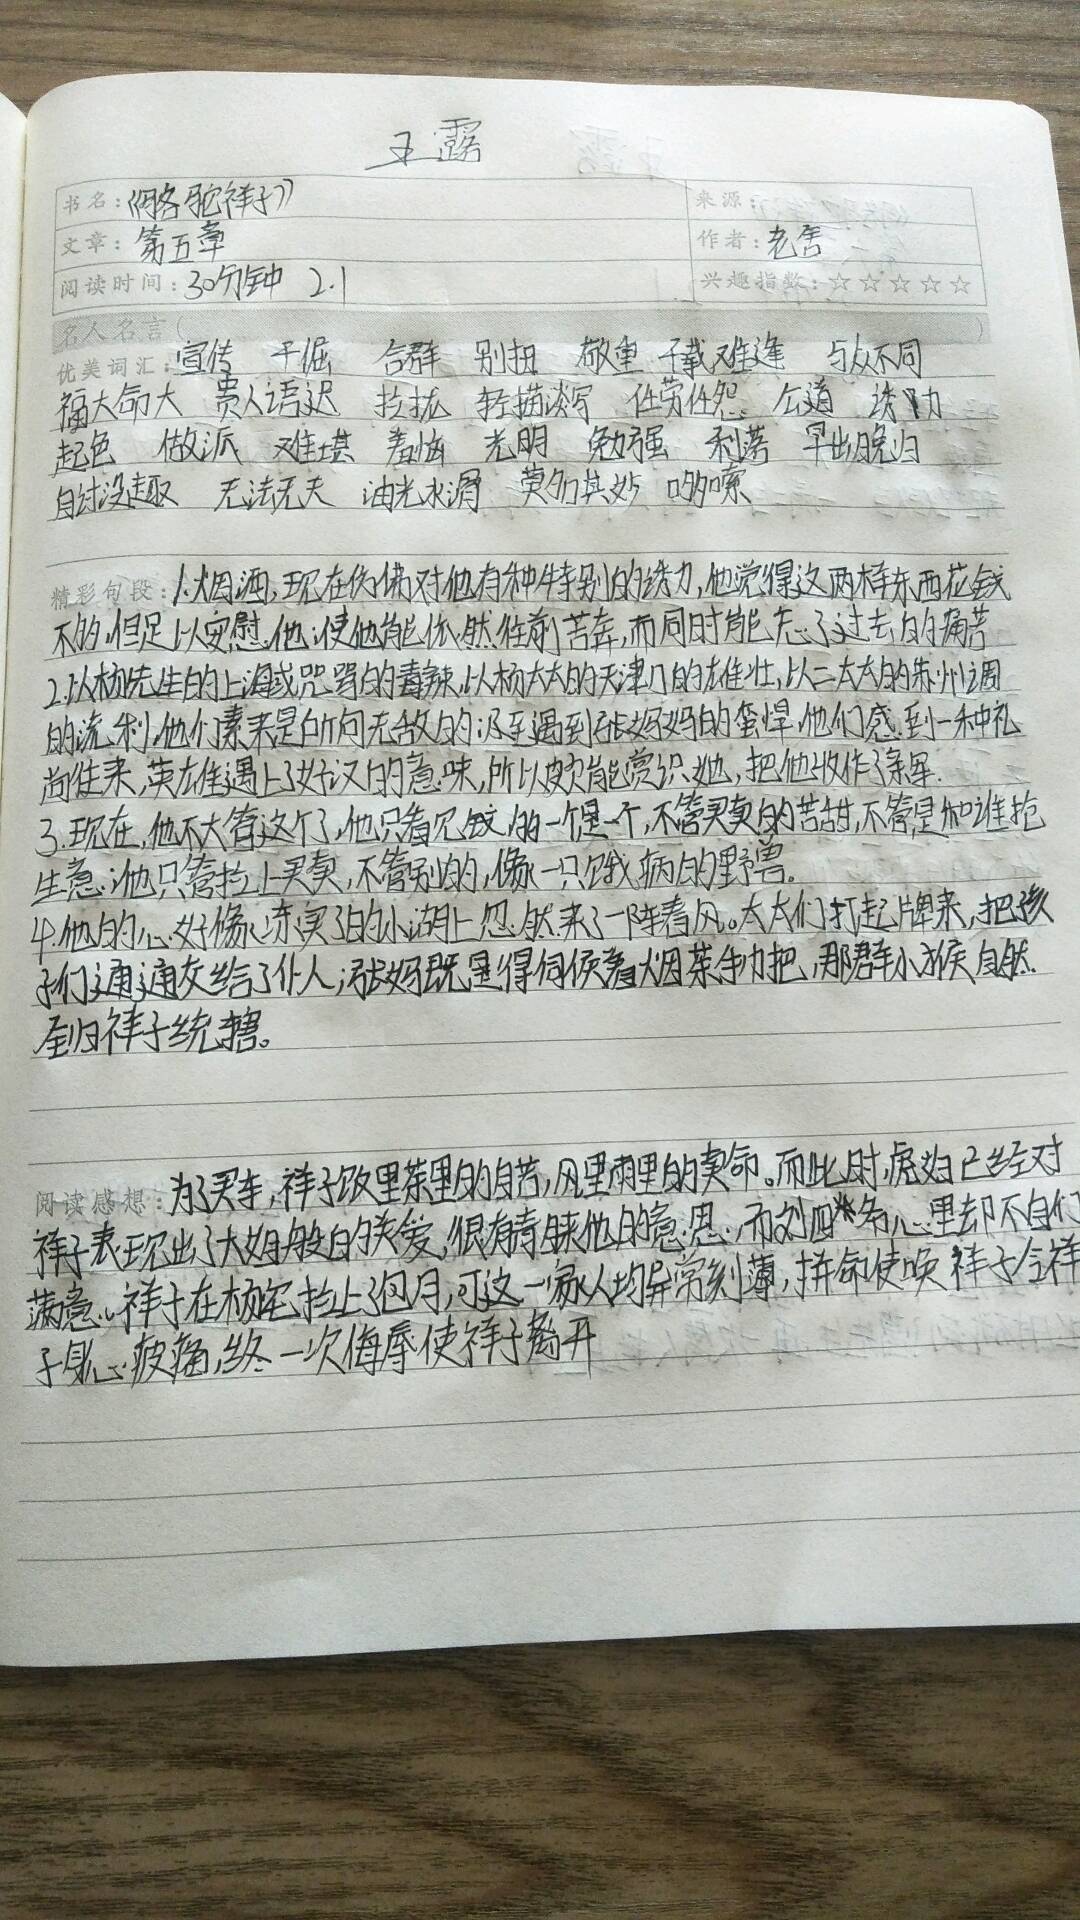 王露
书名：《骆驼祥子》 来源：
文章：第五章 作者：老舍
阅读时间：30分钟 2.1 兴趣指数：☆☆☆☆☆
名人名言（ ）
优美词汇：宣传 干倔 合群 别扭 敬重 千载难逢 与众不同
福大命大 贵人语迟 拉拢 轻描淡写 任劳任怨 公道 诱力
起色 做派 难堪 羞恼 光明 勉强 利落 早出晚归
自讨没趣 无法无天 油光水滑 莫名其妙 哆嗦
精彩句段：1.烟酒，现在仿佛对他有种特别的诱力，他觉得这两样东西花钱
不的，但足以安慰他；使他能依然往前苦奔，而同时能忘了过去的痛苦
2.以杨先生的上海式咒骂的毒辣，以杨太太的天津口的雄壮，以二太太的苏州调
的流利，他们素来是所向无敌的；及至遇到张妈妈的蛮悍，他们感到一种礼
尚往来，英雄遇上了好汉的意味，所以颇能赏识她，把他收作了亲军.
3.现在，他不大管这个了，他只看见钱，的一个是一个，不管买卖的苦甜，不管是和谁抢
生意；他只管拉上买卖，不管别的，像一只饿疯的野兽。
4.他的心好像冻实了的小湖上忽然来了一阵春风。太太们打起牌来，把孩
子们通通交给了仆人；张妈既是得伺候着烟茶手巾把，那群小猴自然
全归祥子统辖。
阅读感想：为了买车，祥子饭里茶里的自苦，风里雨里的卖命。而此时，虎妞已经对
祥子表现出了大姐般的关爱，很有青睐他的意思，而刘四爷心里却不自们
满意。祥子在杨宅拉上了包月，可这一家人均异常刻薄，拼命使唤祥子令祥
子身心疲痛，终一次侮辱使祥子离开